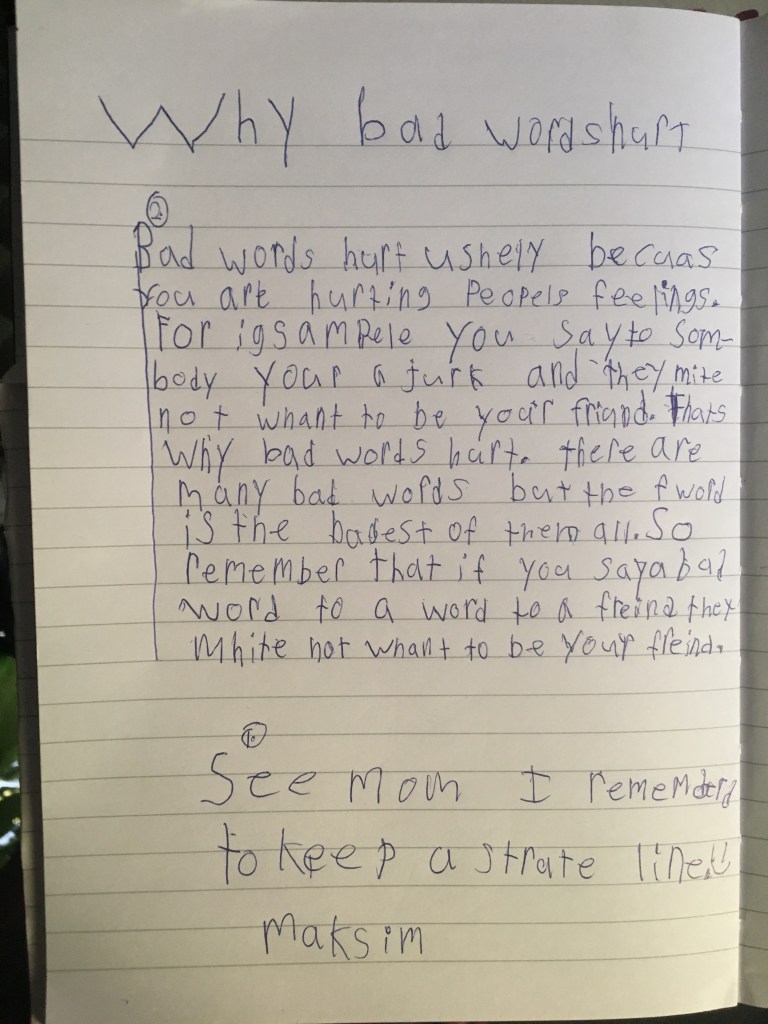 Why bad words hurt
②
Bad words hurt ushely becuas
you are hurting Peopels feelings.
For igsampele you say to som-
body your a jurk and they mite
not whant to be your friand. Thats
Why bad words hurt. there are
many bad words but the f word
is the badest of them all. So
remember that if you say a bad
word to a word to a freind they
mhite not whant to be your freind.
①
See mom I rememberd
to keep a strate line!!
Maksim